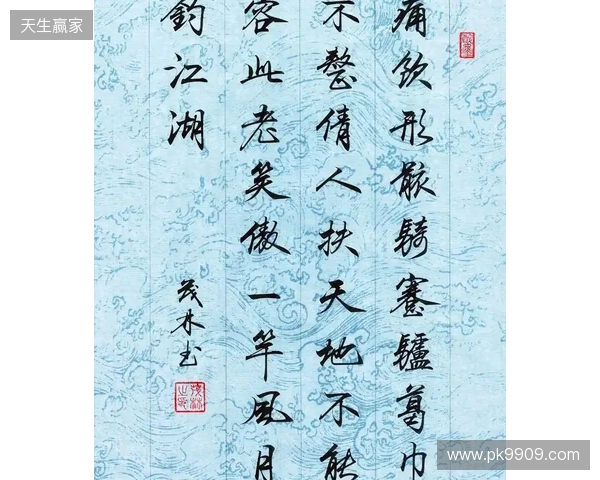 天生赢家
痛飲形骸騎蹇驢葛巾
不整倩人扶天地不能
容此老笑傲一竿風月
釣江湖
茂林书
www.pk9909.com